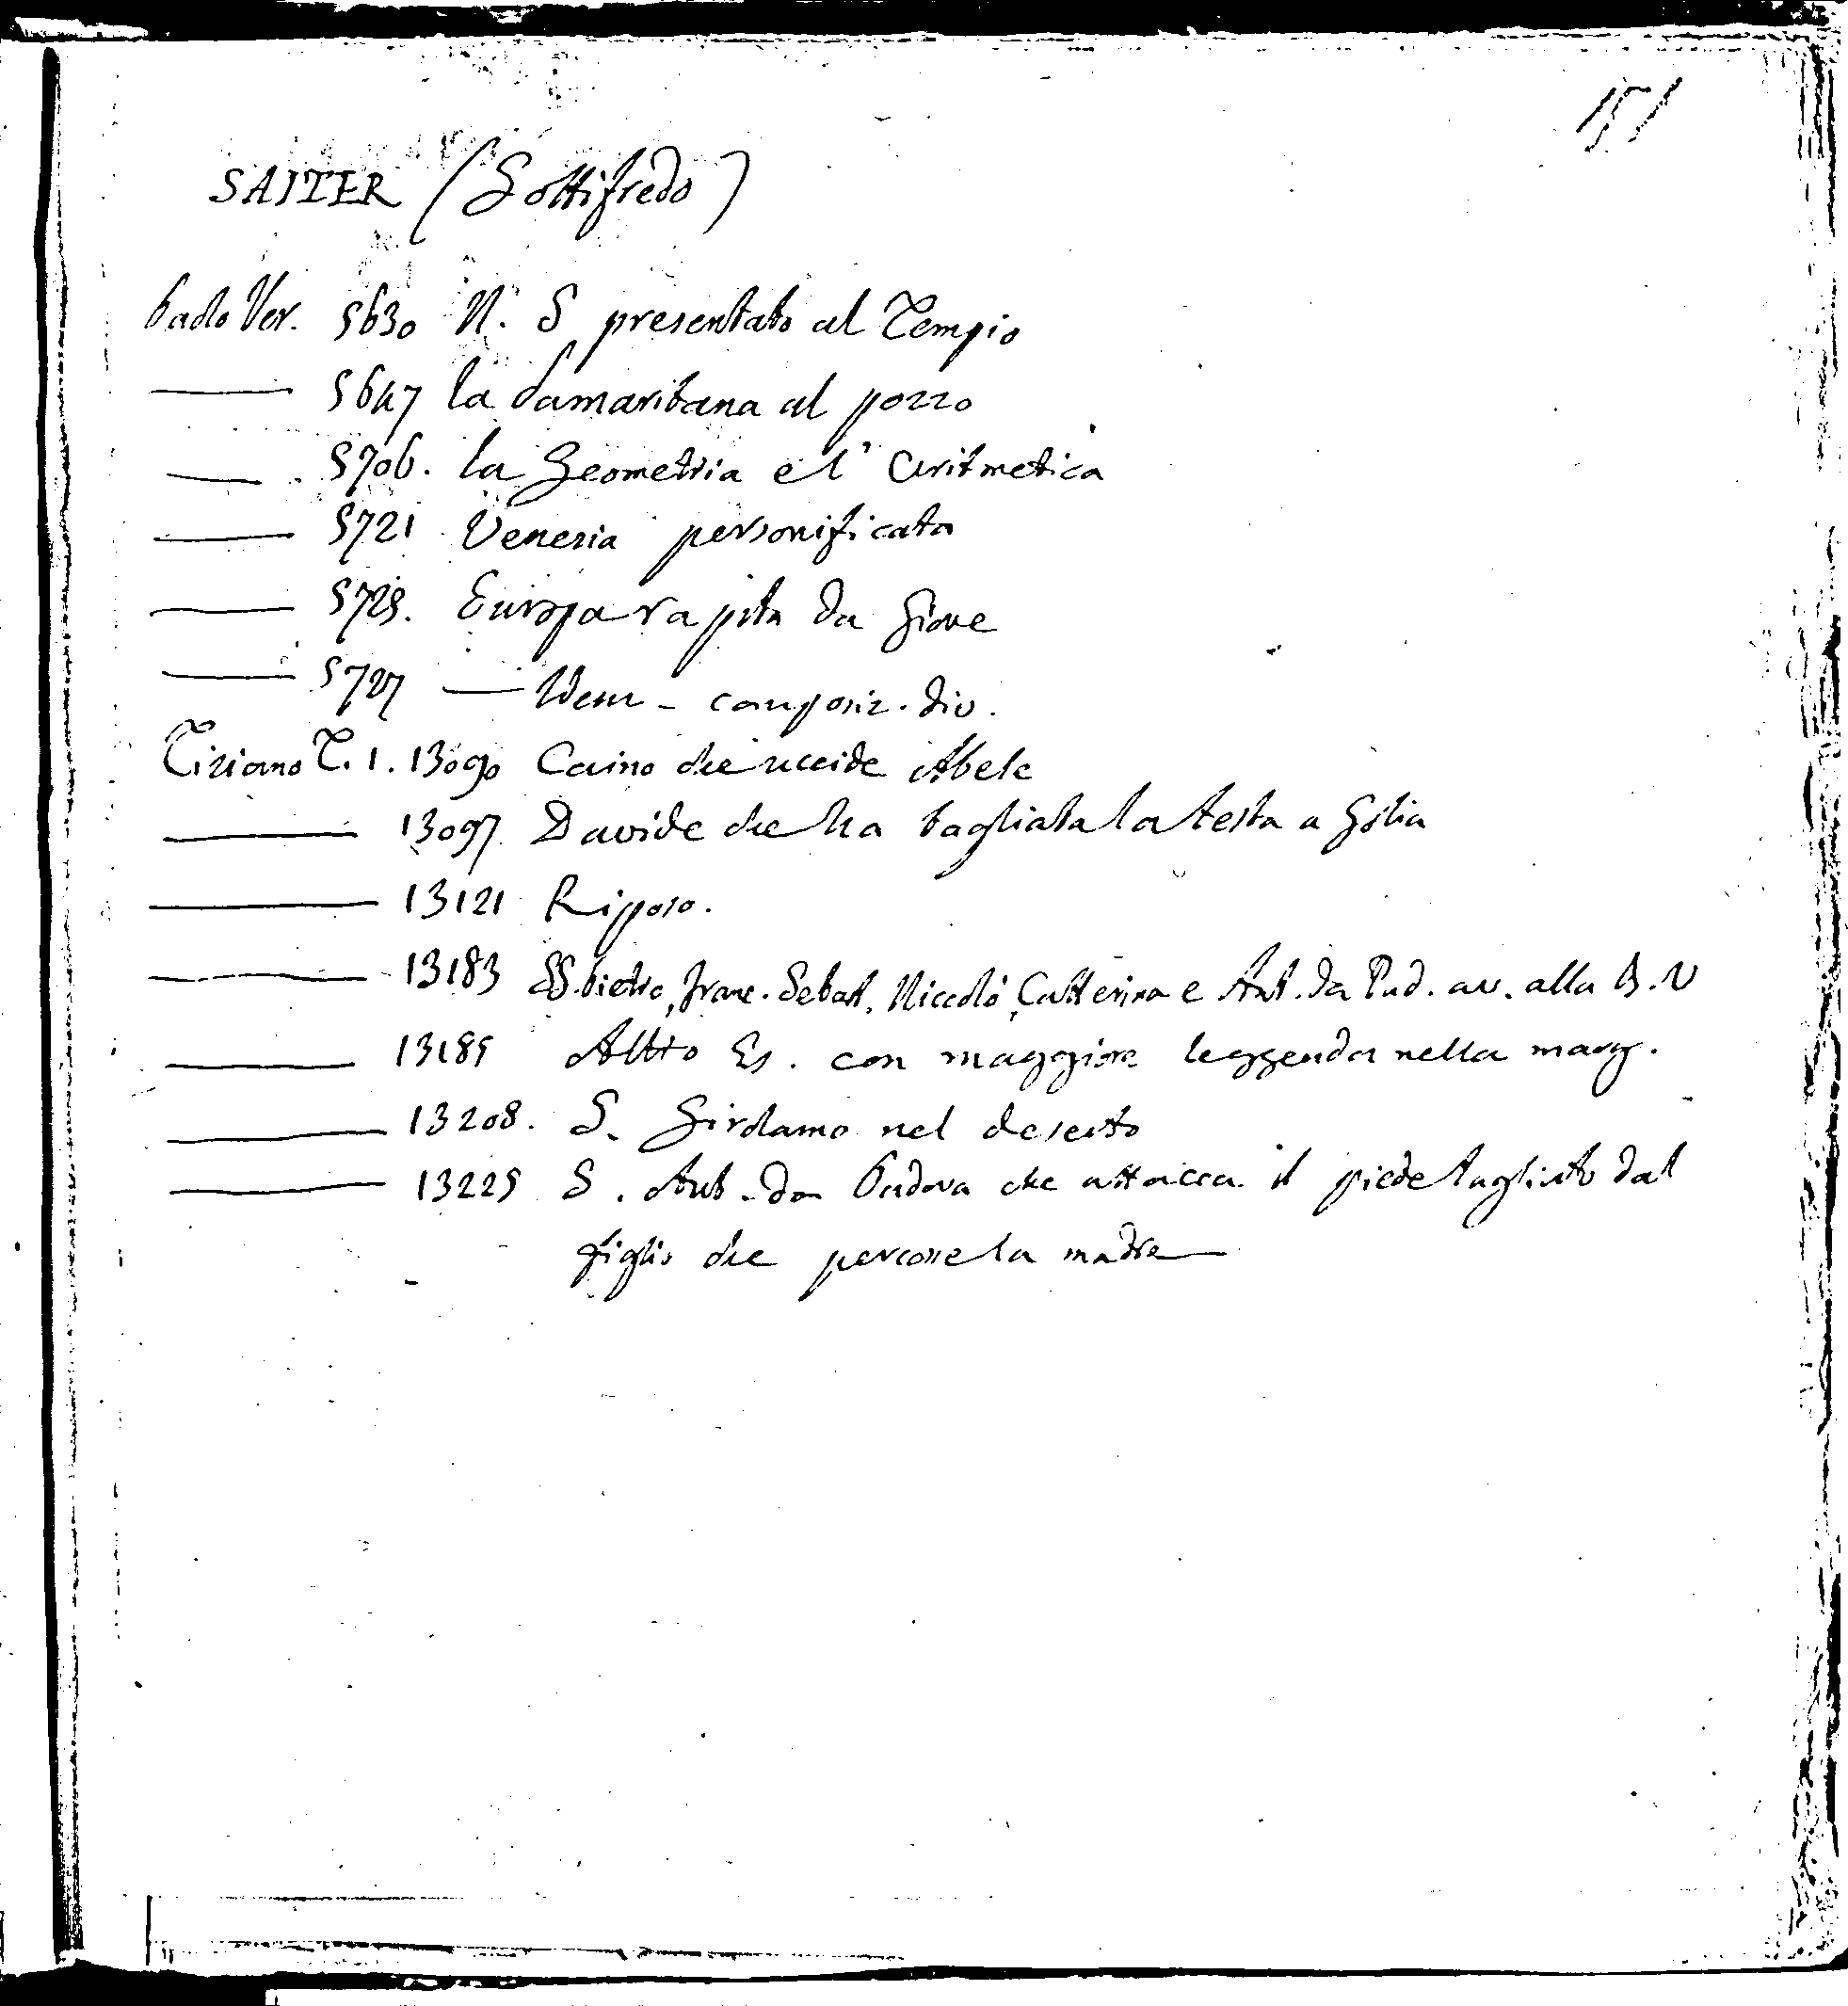 151
SAITER (Gottifredo)
Paolo Ver. 5630 N. S presentato al Tempio
—— 5647 la Samaritana al pozzo
—— 5706. la Geometria e l'Aritmetica
—— 5721 Venezia personificata
—— 5725. Europa rapita da Giove
—— 5727 — Idem - composiz. div.
Tiziano T. 1. 13090 Caino che uccide Abele
—— 13097 Davide che ha tagliata la testa a Golia
—— 13121 Riposo.
—— 13183 SS. Pietro, Franc. Sebast. Niccolò, Catterina e Ant. da Pad. av. alla B. V
—— 13185 Altro Es. con maggiore leggenda nella marg.
—— 13208. S. Girolamo nel deserto
—— 13225 S. Ant. da Padova che attacca il piede tagliato dal
figlio che percosse la madre